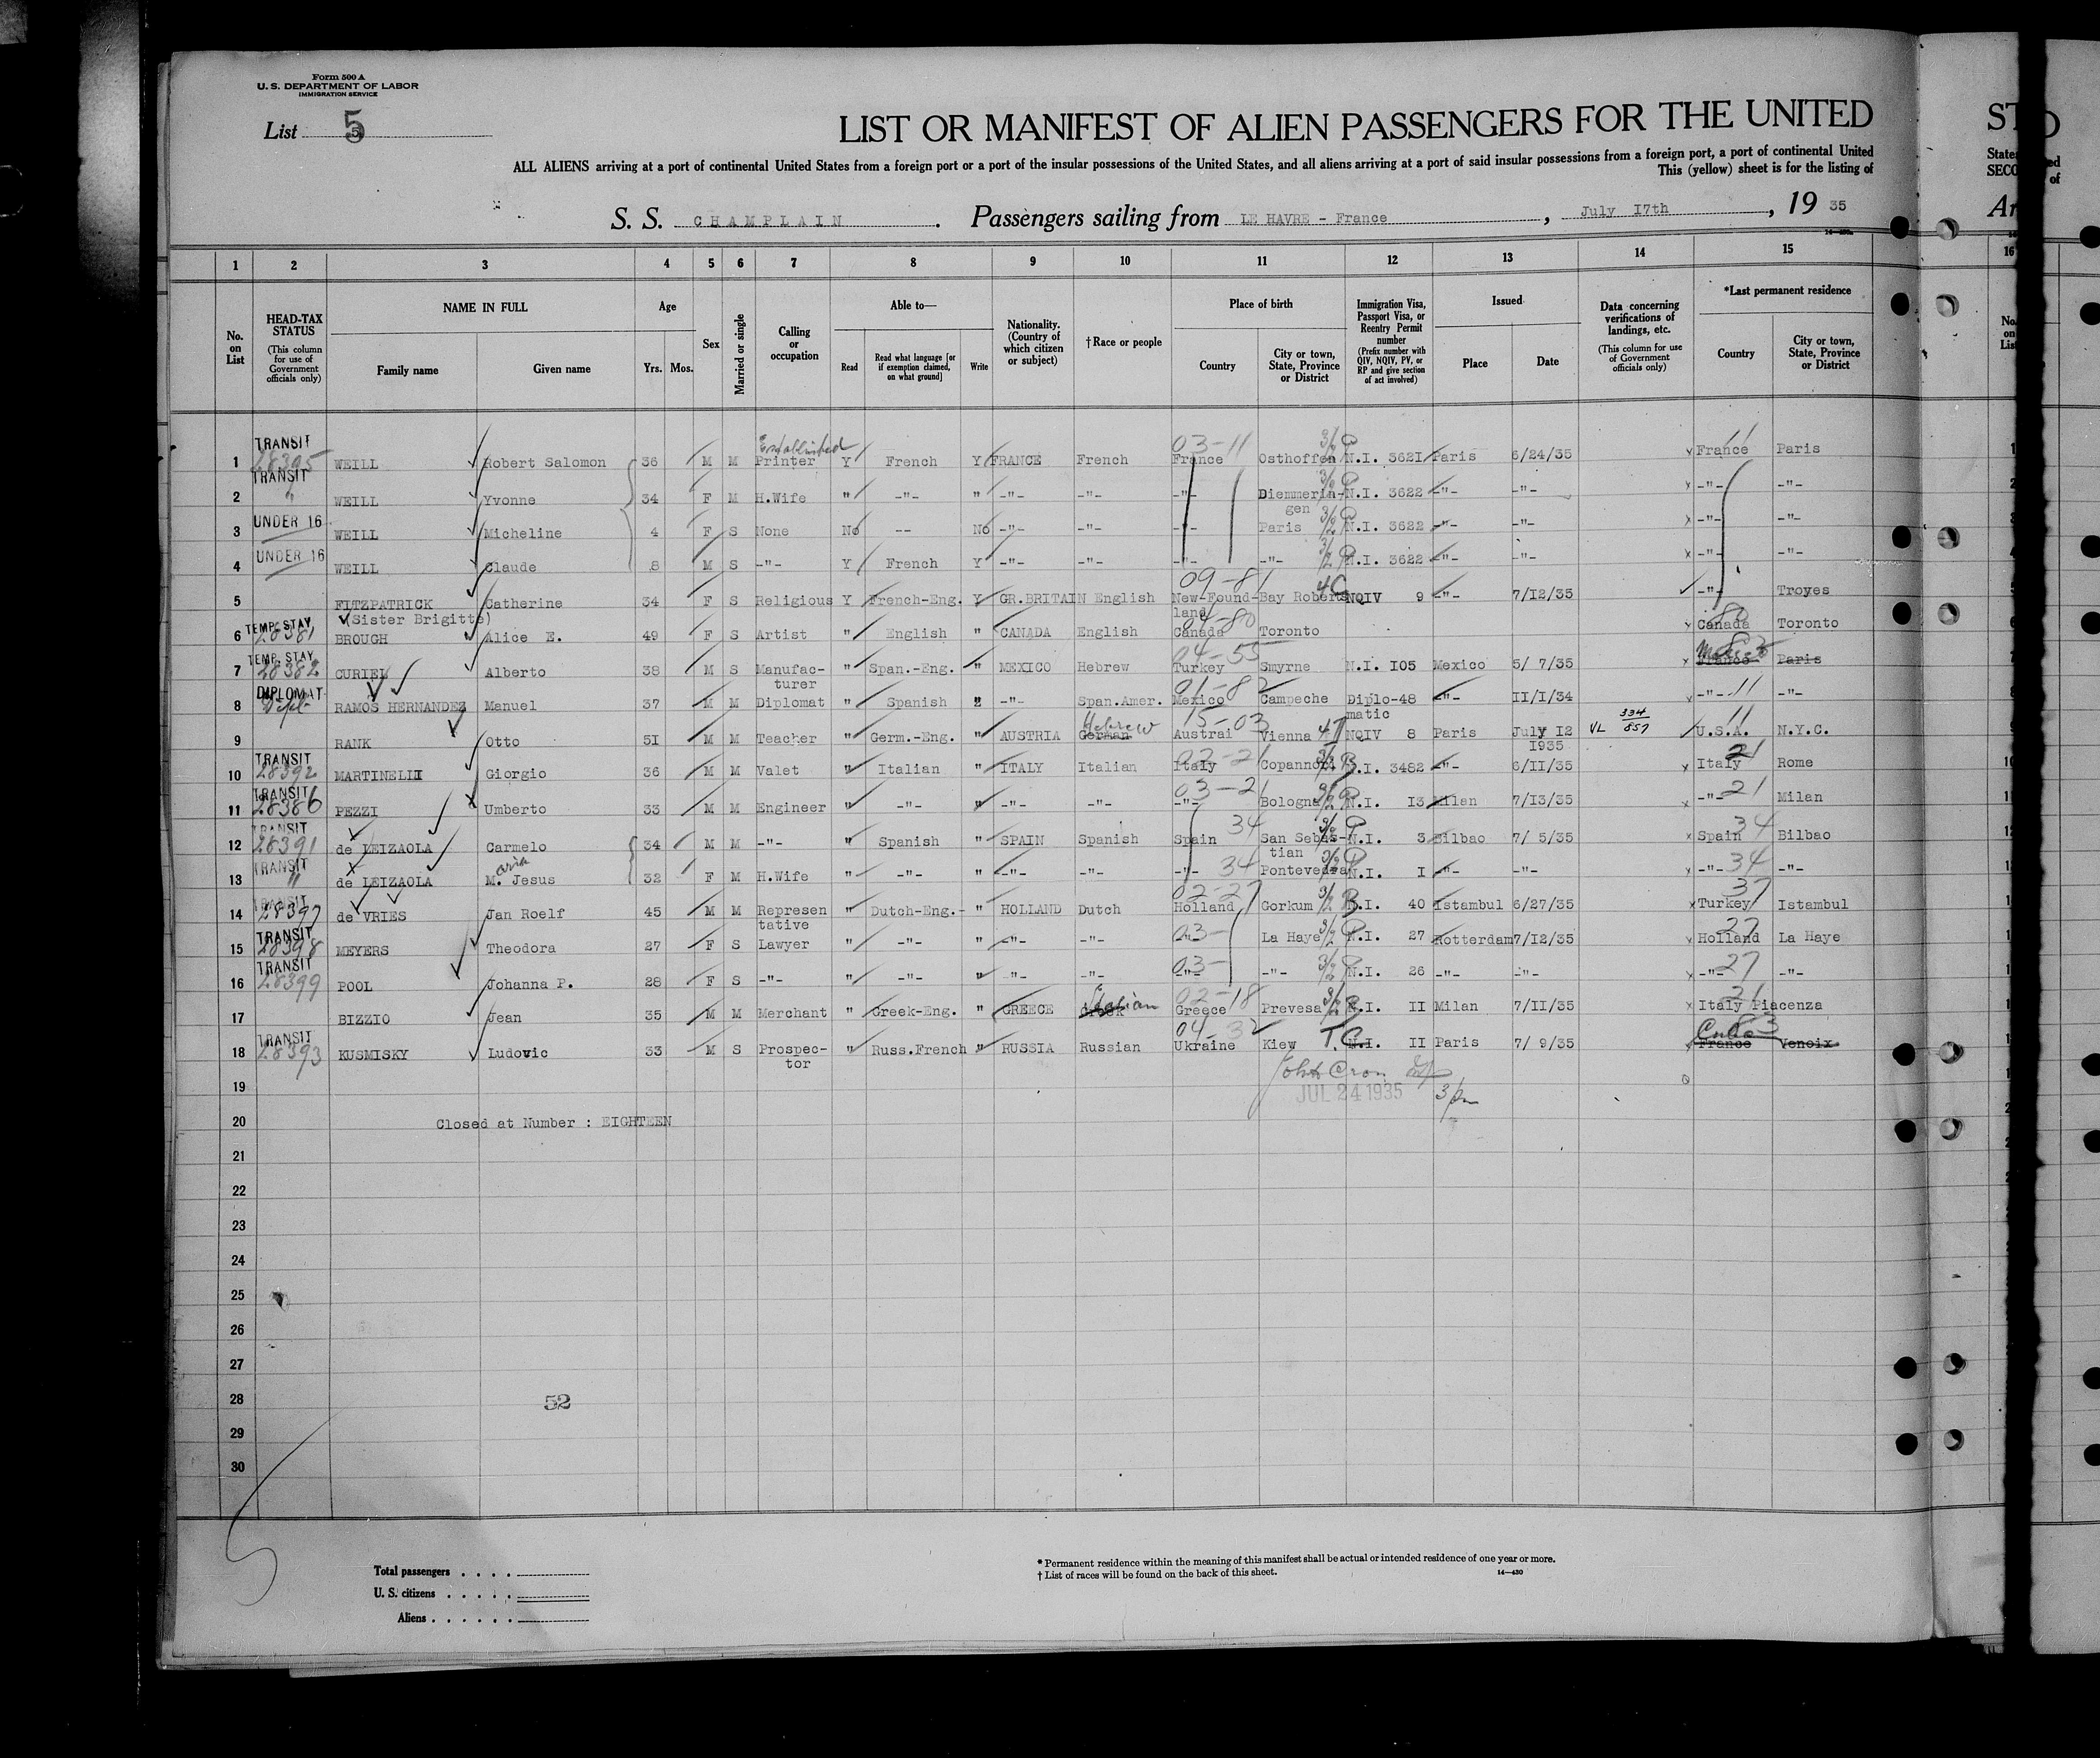 Form 500 A
U. S. DEPARTMENT OF LABOR
IMMIGRATION SERVICE
List 5
LIST OR MANIFEST OF ALIEN PASSENGERS FOR THE UNITED
ALL ALIENS arriving at a port of continental United States from a foreign port or a port of the insular possessions of the United States, and all aliens arriving at a port of said insular possessions from a foreign port, a port of continental United
This (yellow) sheet is for the listing of
S. S. CHAMPLAIN. Passengers sailing from LE HAVRE - France, July I7th, 19 35
1 2 3 4 5 6 7 8 9 10 11 12 13 14 15 16
No. on List
HEAD-TAX STATUS (This column for use of Government officials only)
NAME IN FULL
Family name Given name
Age Yrs. Mos.
Sex
Married or single
Calling or occupation
Able to—
Read Read what language [or if exemption claimed, on what ground] Write
Nationality. (Country of which citizen or subject)
†Race or people
Place of birth
Country City or town, State, Province or District
Immigration Visa, Passport Visa, or Reentry Permit number (Prefix number with QIV, NQIV, PV, or RP and give section of act involved)
Issued
Place Date
Data concerning verifications of landings, etc. (This column for use of Government officials only)
*Last permanent residence
Country City or town, State, Province or District
Established 03-11 3/2 P 11
1 TRANSIT 28395 WEILL Robert Salomon 36 M M Printer Y French Y FRANCE French France Osthoffen N.I. 362I Paris 6/24/35 France Paris
2 TRANSIT " WEILL Yvonne 34 F M H.Wife " -"- " -"- -"- -"- Diemmerin- N.I. 3622 -"- -"- -"- -"-
gen
3 UNDER 16 WEILL Micheline 4 F S None No -- No -"- -"- -"- Paris N.I. 3622 -"- -"- -"- -"-
4 UNDER 16 WEILL Claude 8 M S -"- Y French Y -"- -"- -"- -"- N.I. 3622 -"- -"- -"- -"-
09-81 4C
5 FITZPATRICK Catherine 34 F S Religious Y French-Eng. Y GR.BRITAIN English New-Found- Bay Roberts NQIV 9 -"- 7/I2/35 -"- Troyes
(Sister Brigitte) land
04-80 80
6 TEMP. STAY 28381 BROUGH Alice E. 49 F S Artist " English " CANADA English Canada Toronto Canada Toronto
04-55
7 TEMP. STAY 28382 CURIEL Alberto 38 M S Manufac- " Span.-Eng. " MEXICO Hebrew Turkey Smyrne N.I. I05 Mexico 5/ 7/35 France Paris
turer
01-82 11
8 DIPLOMAT RAMOS HERNANDEZ Manuel 37 M M Diplomat " Spanish " -"- Span.Amer. Mexico Campeche Diplo-48 -"- II/I/34 -"- -"-
matic
Hebrew 15-03 4I VL 334/857 11
9 RANK Otto 5I M M Teacher " Germ.-Eng. " AUSTRIA German Austrai Vienna NQIV 8 Paris July I2 U.S.A. N.Y.C.
I935
21
10 TRANSIT 28392 MARTINELLI Giorgio 36 M M Valet " Italian " ITALY Italian Italy N.I. 3482 -"- 6/II/35 Italy Rome
03-21 21
11 TRANSIT 28386 PEZZI Umberto 33 M M Engineer " -"- " -"- -"- -"- Bologna N.I. I3 Milan 7/I3/35 -"- Milan
34 34
12 TRANSIT 28391 de LEIZAOLA Carmelo 34 M M -"- " Spanish " SPAIN Spanish Spain San Sebas- N.I. 3 Bilbao 7/ 5/35 Spain Bilbao
tian
aria 34 34
13 TRANSIT " de LEIZAOLA M. Jesus 32 F M H.Wife " -"- " -"- -"- -"- Pontevedra N.I. I -"- -"- -"- -"-
02-27 37
14 TRANSIT 28397 de VRIES Jan Roelf 45 M M Represen " Dutch-Eng.- " HOLLAND Dutch Holland Gorkum N.I. 40 Istambul 6/27/35 Turkey Istambul
tative
03- 27
15 TRANSIT 28398 MEYERS Theodora 27 F S Lawyer " -"- " -"- -"- -"- La Haye N.I. 27 Rotterdam 7/I2/35 Holland La Haye
03- 27
16 TRANSIT 28399 POOL Johanna P. 28 F S -"- " -"- " -"- -"- -"- N.I. 26 -"- -"- -"- -"-
Italian 02-18 21
17 BIZZIO Jean 35 M M Merchant " Greek-Eng. " GREECE Greek Greece Prevesa N.I. II Milan 7/II/35 Italy Piacenza
04-32 T.C. Cuba 83
18 TRANSIT 28393 KUSMISKY Ludovic 33 M S Prospec- " Russ.French " RUSSIA Russian Ukraine Kiew N.I. II Paris 7/ 9/35 France Venoix
tor
19
JUL 24 1935
20 Closed at Number : EIGHTEEN
21
22
23
24
25
26
27
28 52
29
30
Total passengers . . . .
U. S. citizens . . . . .
Aliens . . . . . .
* Permanent residence within the meaning of this manifest shall be actual or intended residence of one year or more.
† List of races will be found on the back of this sheet.
14—430